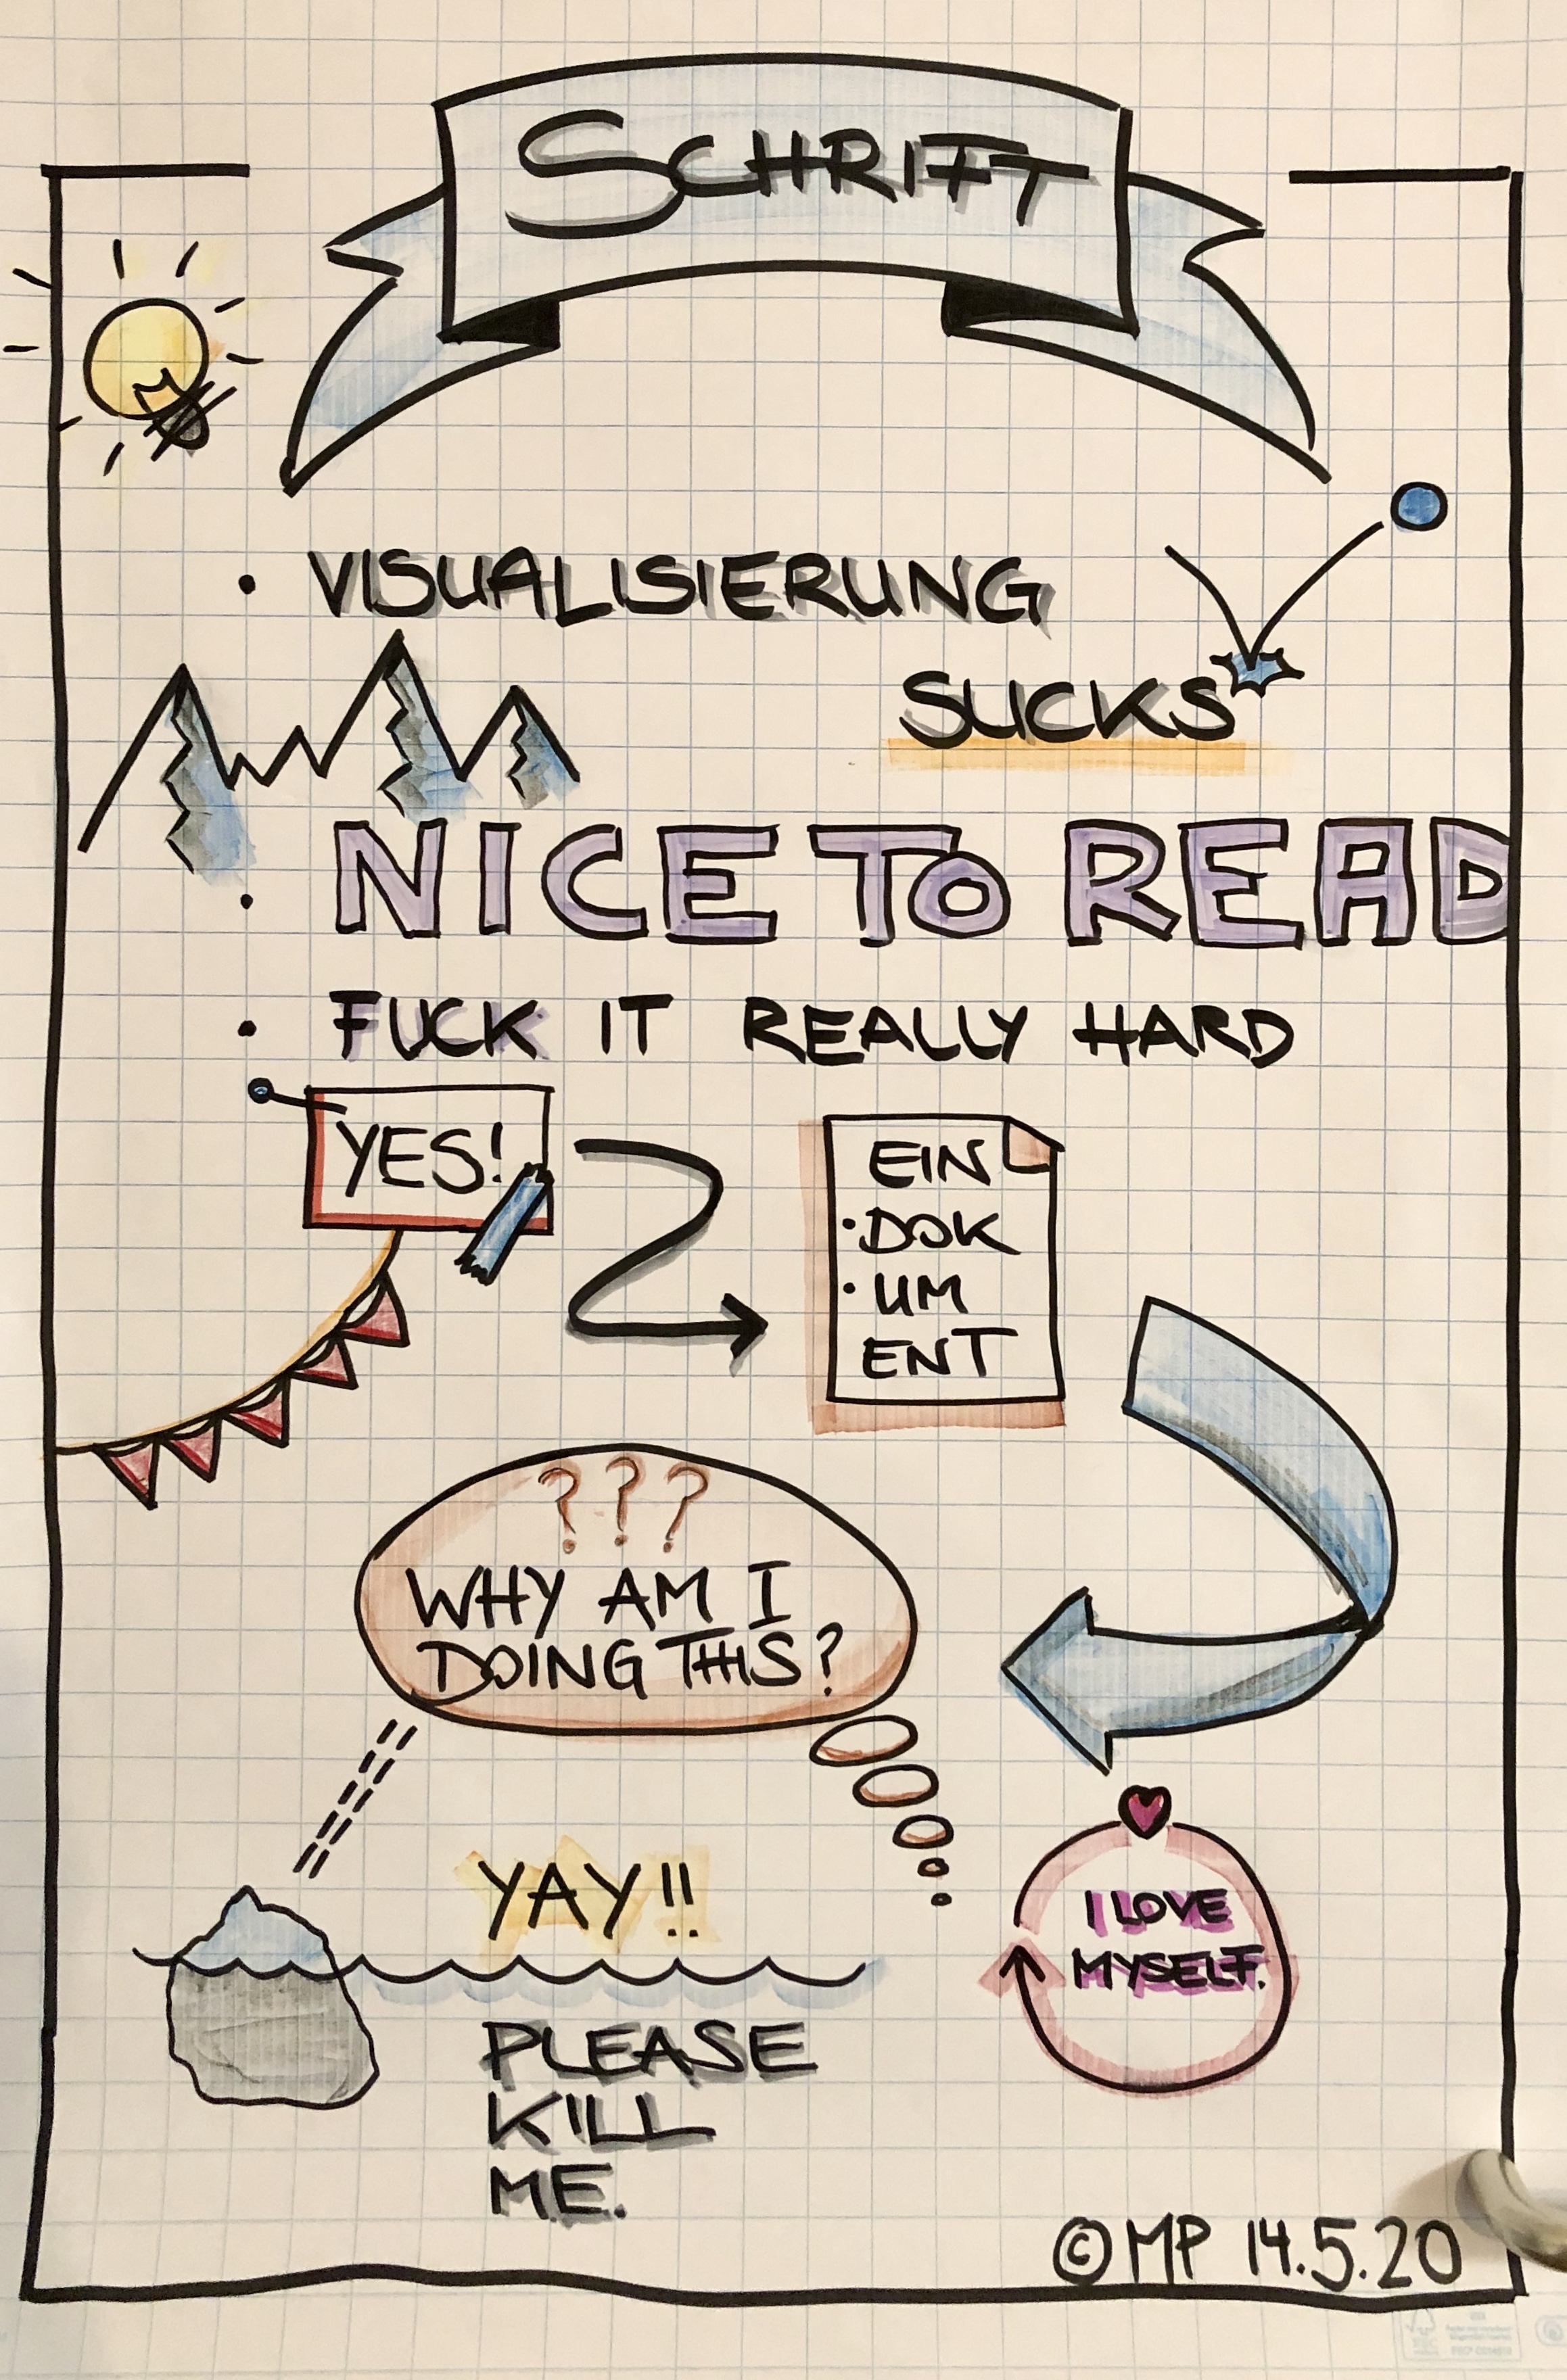 SCHRIFT
• VISUALISIERUNG
SUCKS
• NICE TO READ
• FUCK IT REALLY HARD
YES!
EIN
• DOK
• UM
ENT
???
WHY AM I
DOING THIS?
YAY!!
I LOVE
MYSELF.
PLEASE
KILL
ME.
© MP 14.5.20